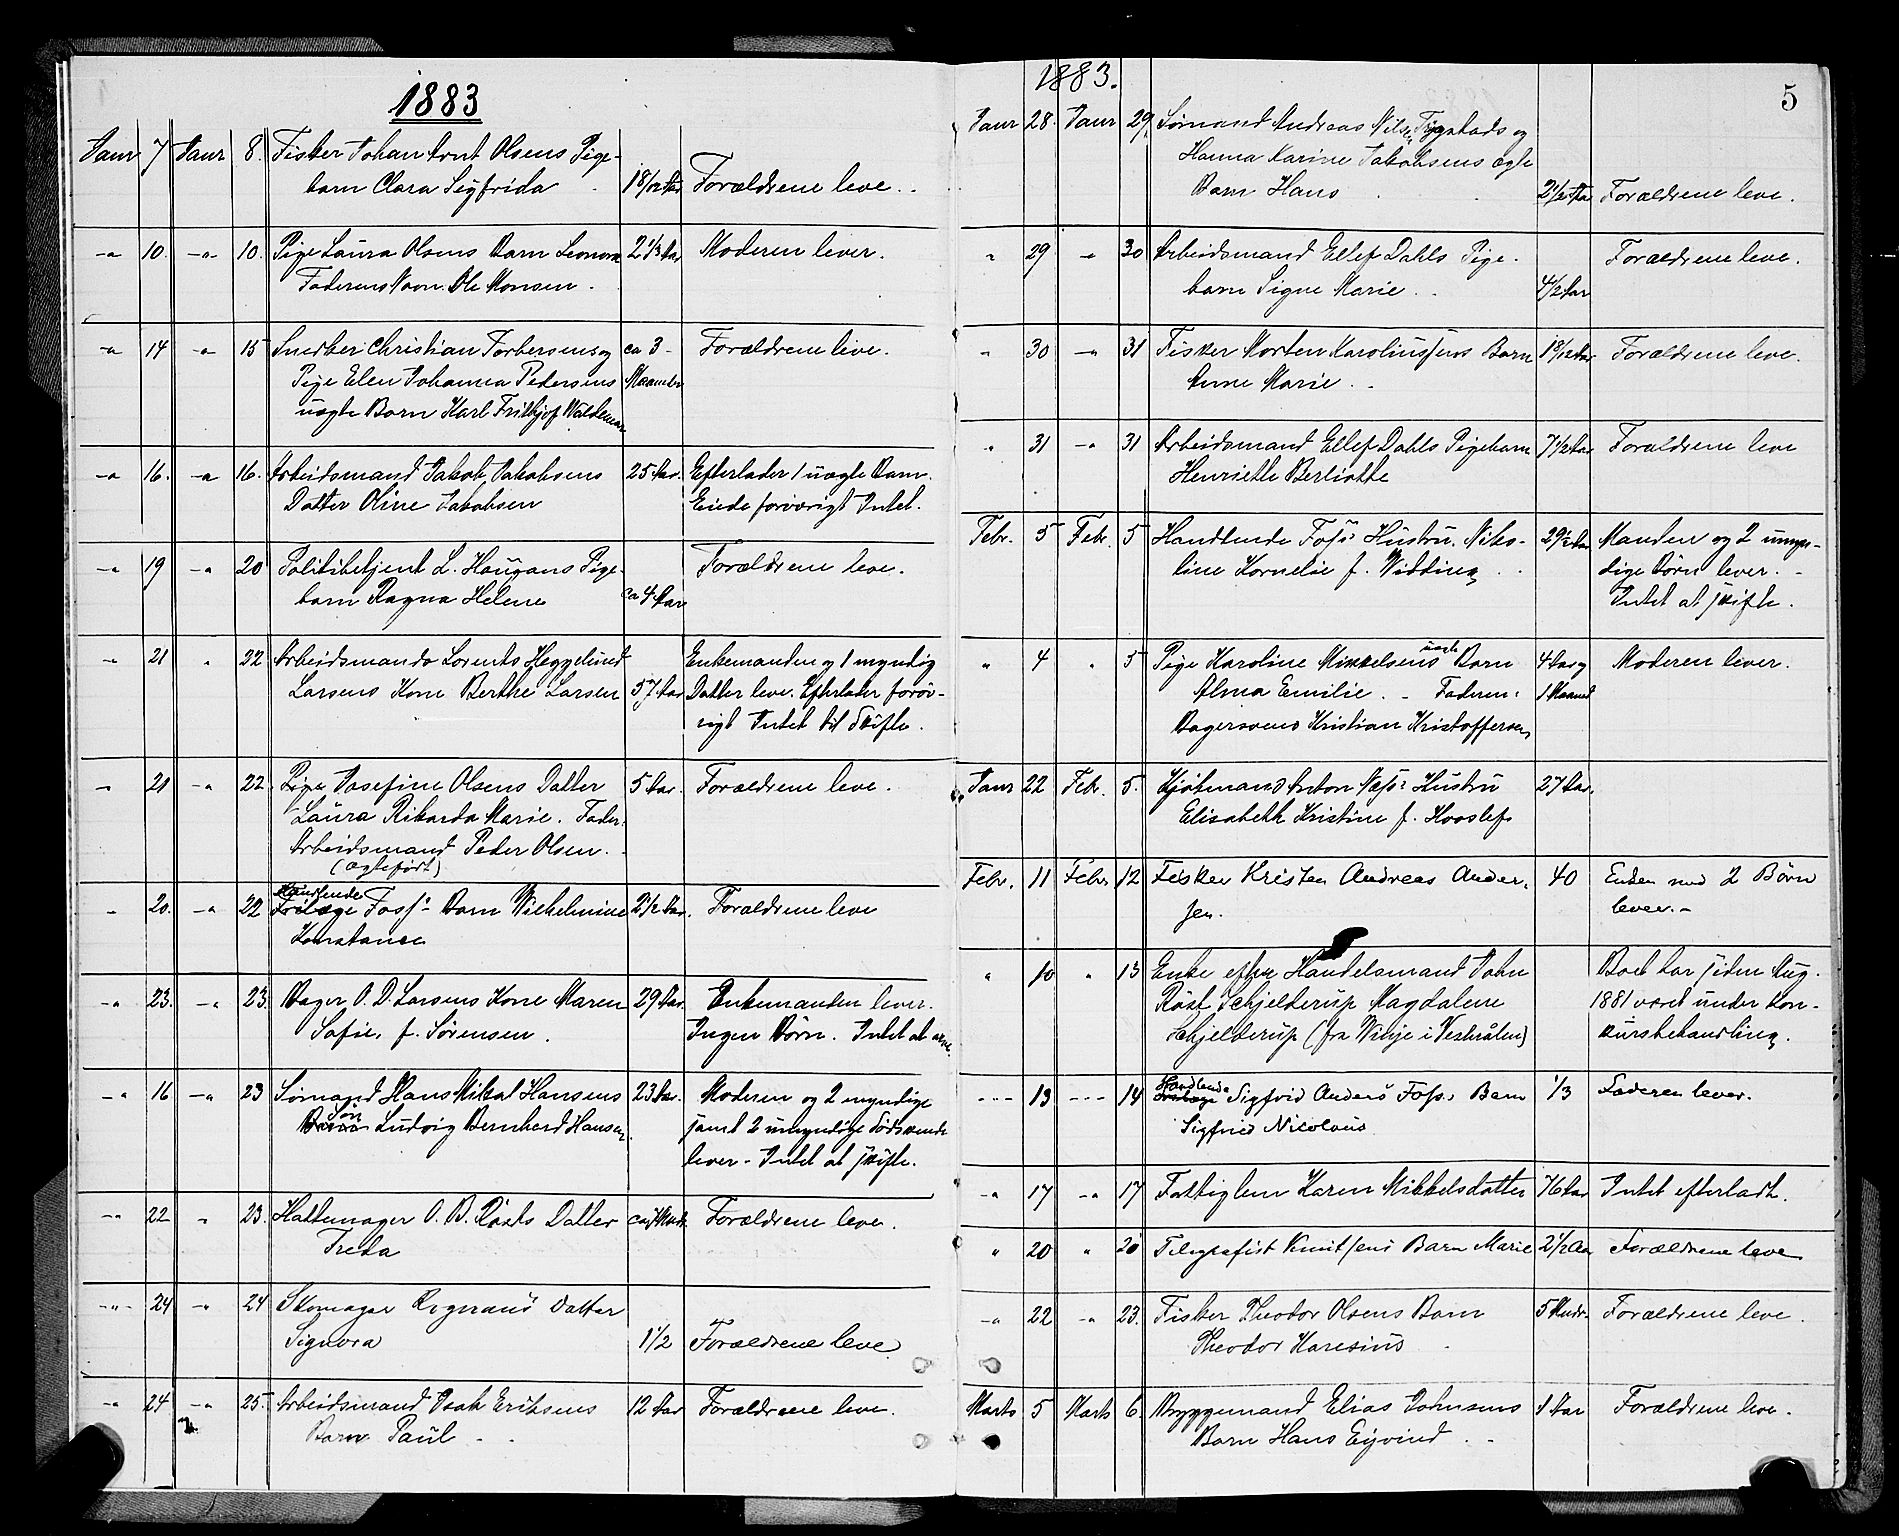 1883
Janr 7 Janr 8. Fisker Johan Arnt Olsens Pige-
barn Clara Sigfrida 1 8/12 Aar Forældrene leve.
-"- 10. -"- 10. Pige Laura Olsens Barn Leonora 2 1/3 Aar Moderen lever.
Faderens Navn Ole Monsen.
-"- 14 -"- 15 Snedker Christian Torbersens og ca 3 Forældrene leve.
Pige Elen Johanna Pedersens Maaneder
uægte Barn Karl Fridhjof Waldemar
-"- 16. -"- 16. Arbeidsmand Jakob Jakobsens 25 Aar. Efterlader 1 uægte Barn.
Datter Oline Jakobsen Eiede forøvrigt Intet.
-"- 19 -"- 20 Politibetjent L. Haugans Pige- Forældrene leve.
barn Ragna Helene ca 4 Aar
-"- 21 " 22 Arbeidsmand Lorents Heggelund Enkemanden og 1 myndig
Larsens Kone Berthe Larsen 57 Aar Datter leve. Efterlader forøv-
rigt Intet til Skifte.
-"- 21 -"- 22. Pige Josefine Olsens Datter 5 Aar. Forældrene leve.
Laura Rikarda Marie. Fader:
Arbeidsmand Peder Olsen.
(ægteført)
Handlende
-"- 20. -"- 22 Foss' Barn Wilhelmine 2 1/2 Aar. Forældrene leve
Konstance
-"- 23. -"- 23. Bager O. D. Larsens Kone Maren 29 Aar. Enkemanden lever.
Sofie, f. Sørensen. Ingen Børn. Intet at arve.
-"- 16 -"- 23 Sømand Hans Mikal Hansens 23 Aar. Moderen og 2 myndige
Søn Ludvig Bernherd Hansen. samt 2 umyndige Sødskende
lever - Intet at skifte.
-"- 22 " 23. Hattemager O. B. Røsts Datter ca Forældrene leve.
Freda
-"- 24 -"- 24 Skomager Datter
Signora 1 1/2 Forældrene leve
-"- 24 -"- 25. Arbeidsmand Isak Eriksens 12 Aar Forældrene leve.
Barn Paul
1883. 5
Janr 28. Janr 29. Sømand Andreas Nils. og
Hanna Karine Jakobsens ægte
Barn Hans 2 1/2 Aar Forældrene leve.
" 29 -"- 30 Arbeidsmand Ellef Dahls Pige- Forældrene leve.
barn Signe Marie. 4 1/2 Aar
" 30 -"- 31 Fisker Morten Karoliussens Barn 1 8/12 Aar Forældrene leve.
Anne Marie.
" 31 -"- 31 Arbeidsmand Ellef Dahls Pigebarn 7 1/2 Aar Forældrene leve
Henriette Berliothe
Febr. 5 Febr. 5 Handlende Foss' Hustru. Niko- 29 1/2 Aar Manden og 2 umyn-
line Kornelie f. Widding dige Børn lever.
Intet at skifte.
" 4 " 5 Pige Karoline Mikkelsens uægte Barn 4 Aar og Moderen lever.
Alma Emilie. - Faderen: 1 Maaned
Bagersvend Kristian Kristoffersen
Janr 22 Febr. 5. Kjøbmand Anton Næss' Hustru 27 Aar.
Elisabeth Kristine f. Hooslef
Febr. 11 Febr. 12 Fisker Kristen Andreas Ander- 40 Enken med 2 Børn
sen. lever.-
" 10 " 13 Enke efter Handelsmand John Boet har siden Aug.
Røst Schjelderup Magdalene 1881 været under Kon-
Schjelderup (fra Winje i Vesteraalen) kursbehandling.
Handlende
-"- 13 -"- 14 Sigfrid Anders Foss. Barn 1/3 Faderen lever.
Sigfried Nicolaus
-"- 17 -"- 17 Fattiglem Karen Mikkelsdatter 76 Aar Intet efterladt.
" 20 " 20 Telegrafist Knutsens Barn Marie 2 1/2 Aar Forældrene leve
-"- 22 -"- 23. Fisker Theodor Olsens Barn 5 Mndr. Forældrene leve.
Theodor Haresius
Marts 5 Marts 6. Bryggemand Elias Johnsens 1 Aar Forældrene leve.
Barn Hans Eyvind.